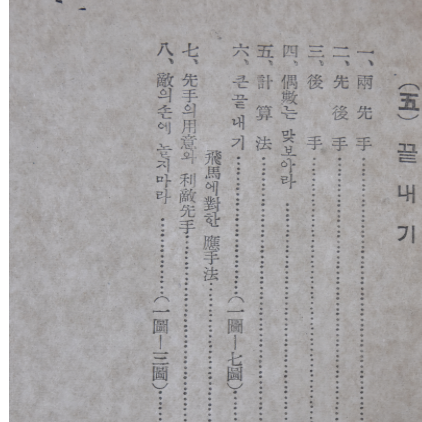 (五) 끝내기
一、兩先手
二、先後手
三、後手
四、偶數는 맞보아라
五、計算法
六、큰끝내기 (一圖—七圖)
飛馬에 對한 應手法
七、先手의 用意와 利敵先手
八、敵의 손에 놀지마라 (一圖—三圖)